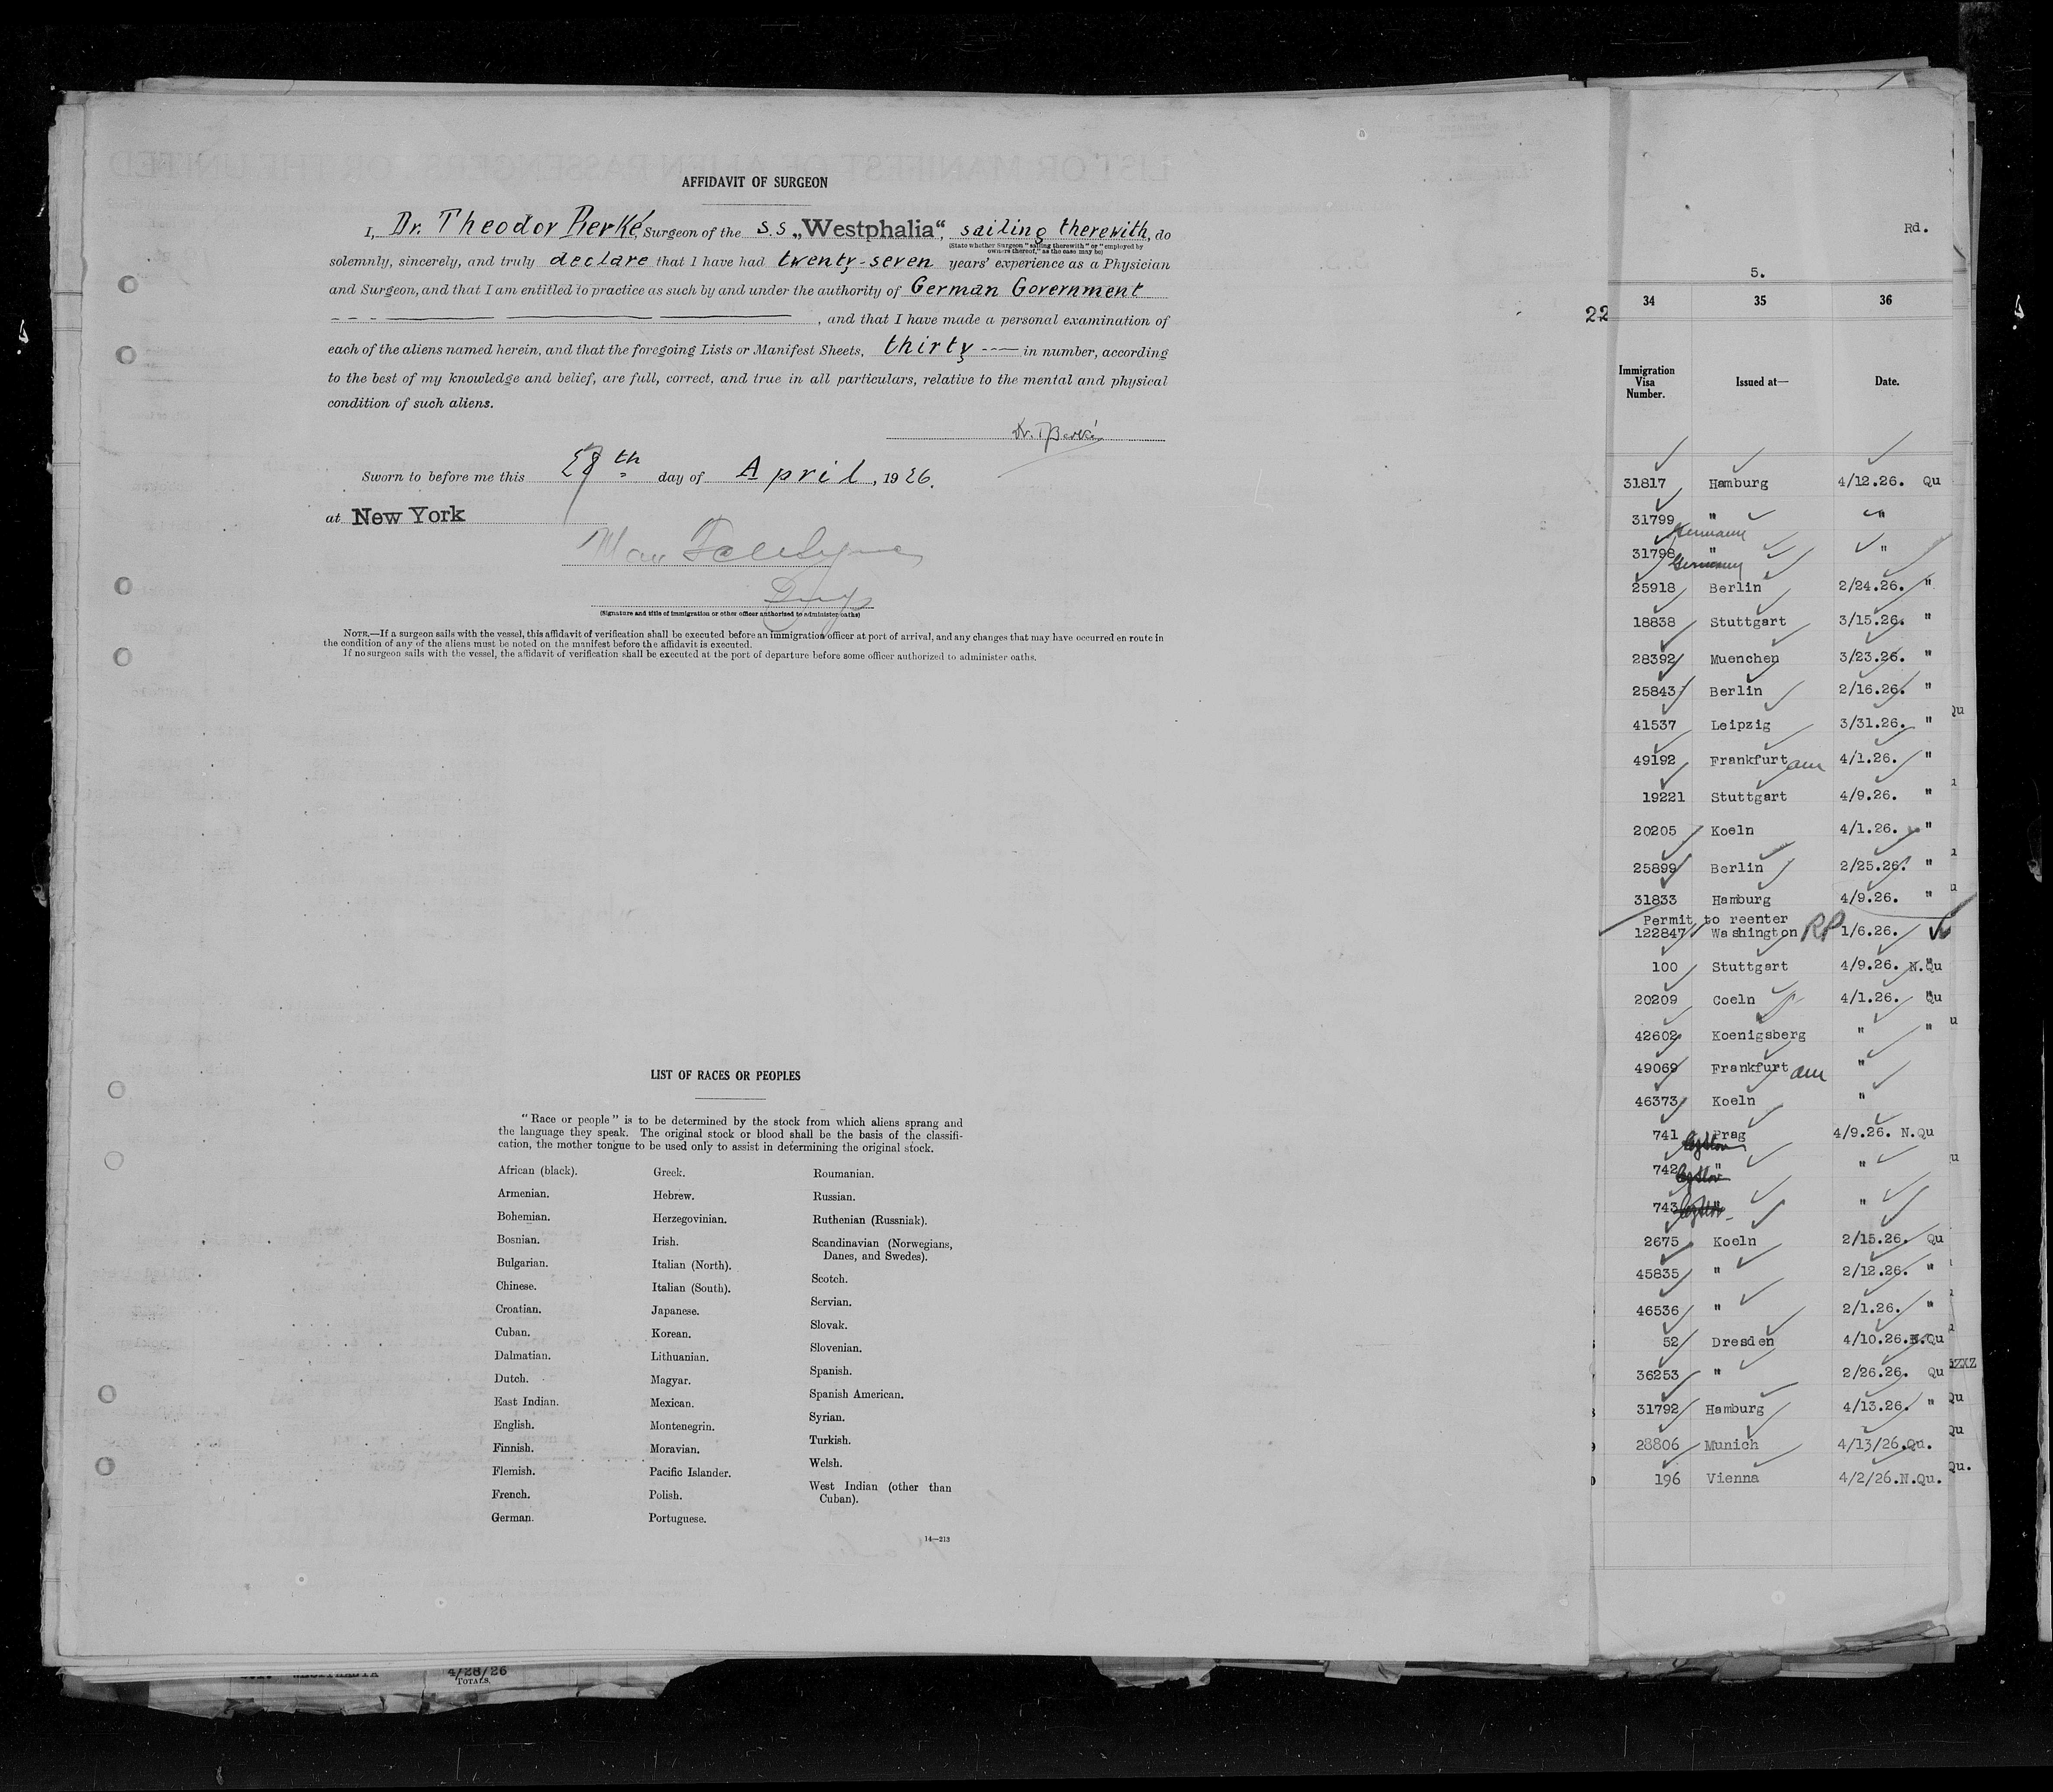 AFFIDAVIT OF SURGEON
I, Dr. Theodor Berké, Surgeon of the S.S „Westphalia“, sailing therewith, do
(State whether Surgeon "sailing therewith" or "employed by
owners thereof," as the case may be)
solemnly, sincerely, and truly declare that I have had twenty-seven years' experience as a Physician
and Surgeon, and that I am entitled to practice as such by and under the authority of German Government
, and that I have made a personal examination of
each of the aliens named herein, and that the foregoing Lists or Manifest Sheets, thirty in number, according
to the best of my knowledge and belief, are full, correct, and true in all particulars, relative to the mental and physical
condition of such aliens.
Dr. T Berké
Sworn to before me this 28th day of April, 1926.
at New York
(Signature and title of immigration or other officer authorized to administer oaths)
NOTE.—If a surgeon sails with the vessel, this affidavit of verification shall be executed before an immigration officer at port of arrival, and any changes that may have occurred en route in
the condition of any of the aliens must be noted on the manifest before the affidavit is executed.
If no surgeon sails with the vessel, the affidavit of verification shall be executed at the port of departure before some officer authorized to administer oaths.
LIST OF RACES OR PEOPLES
"Race or people" is to be determined by the stock from which aliens sprang and
the language they speak. The original stock or blood shall be the basis of the classifi-
cation, the mother tongue to be used only to assist in determining the original stock.
African (black).
Armenian.
Bohemian.
Bosnian.
Bulgarian.
Chinese.
Croatian.
Cuban.
Dalmatian.
Dutch.
East Indian.
English.
Finnish.
Flemish.
French.
German.
Greek.
Hebrew.
Herzegovinian.
Irish.
Italian (North).
Italian (South).
Japanese.
Korean.
Lithuanian.
Magyar.
Mexican.
Montenegrin.
Moravian.
Pacific Islander.
Polish.
Portuguese.
Roumanian.
Russian.
Ruthenian (Russniak).
Scandinavian (Norwegians,
Danes, and Swedes).
Scotch.
Servian.
Slovak.
Slovenian.
Spanish.
Spanish American.
Syrian.
Turkish.
Welsh.
West Indian (other than
Cuban).
14—213
4/28/26
TOTALS.
Rd.
5.
22
34 35 36
Immigration
Visa
Number.
Issued at—
Date.
31817 Hamburg 4/12.26. Qu
31799 " "
Germany
31798 " "
Germany
25918 Berlin 2/24.26. "
18838 Stuttgart 3/15.26. "
28392 Muenchen 3/23.26. "
25843 Berlin 2/16.26. "
41537 Leipzig 3/31.26. "
49192 Frankfurt am 4/1.26. "
19221 Stuttgart 4/9.26. "
20205 Koeln 4/1.26. "
25899 Berlin 2/25.26. "
31833 Hamburg 4/9.26. "
Permit to reenter
122847 Washington RP 1/6.26.
100 Stuttgart 4/9.26. N.Qu
20209 Coeln 4/1.26. Qu
42602 Koenigsberg " "
49069 Frankfurt am "
46373 Koeln "
741 Prag 4/9.26. N.Qu
742 " "
743 " "
2675 Koeln 2/15.26. Qu
45835 " 2/12.26. "
46536 " 2/1.26. "
52 Dresden 4/10.26. N.Qu
36253 " 2/26.26. Qu
31792 Hamburg 4/13.26. "
28806 Munich 4/13/26.Qu.
196 Vienna 4/2/26.N.Qu.